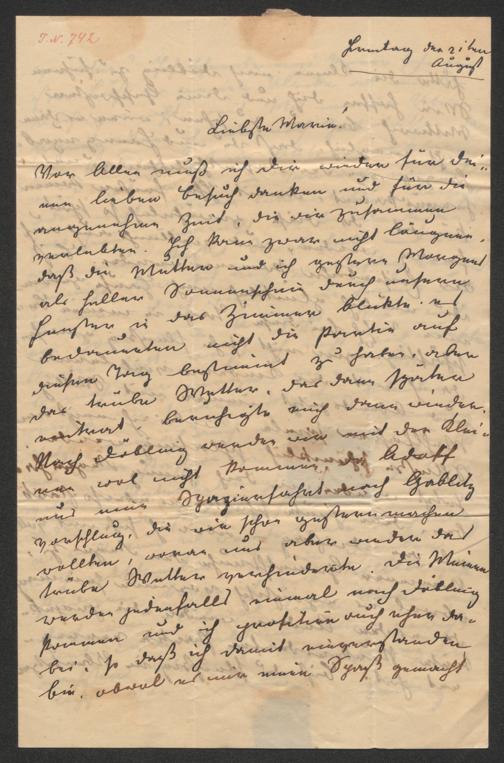 I. N. 742
Sonntag den 21ten
August
Liebste Marie!
Vor Allem muß ich dir wieder für dei-
nen lieben Besuch danken und für die
angenehme Zeit, die wir zusammen
verlebten. Ich kann zwar nicht läugnen,
daß die Mutter und ich gestern Morgens
als heller Sonnenschein durch unsere
Fenster in das Zimmer blickte, es
bedauerten nicht die Partie auf
diesen Tag bestimmt zu haben, aber
das trübe Wetter, das dann später
eintrat, beruhigte mich dann wieder.
Nach Döbling werden wir mit der Klei-
nen wol nicht kommen, Adolf
uns eine Spazierfahrt nach Gablitz
vorschlug, die wir schon gestern machen
wollten, woran uns aber wieder das
trübe Wetter verhinderte. Die Kleine
werden jedenfalls einmal nach Döbling
kommen und ich profitire auch eher da-
bei, so daß ich damit einverstanden
bin, obwol es mir einen Spaß gemacht